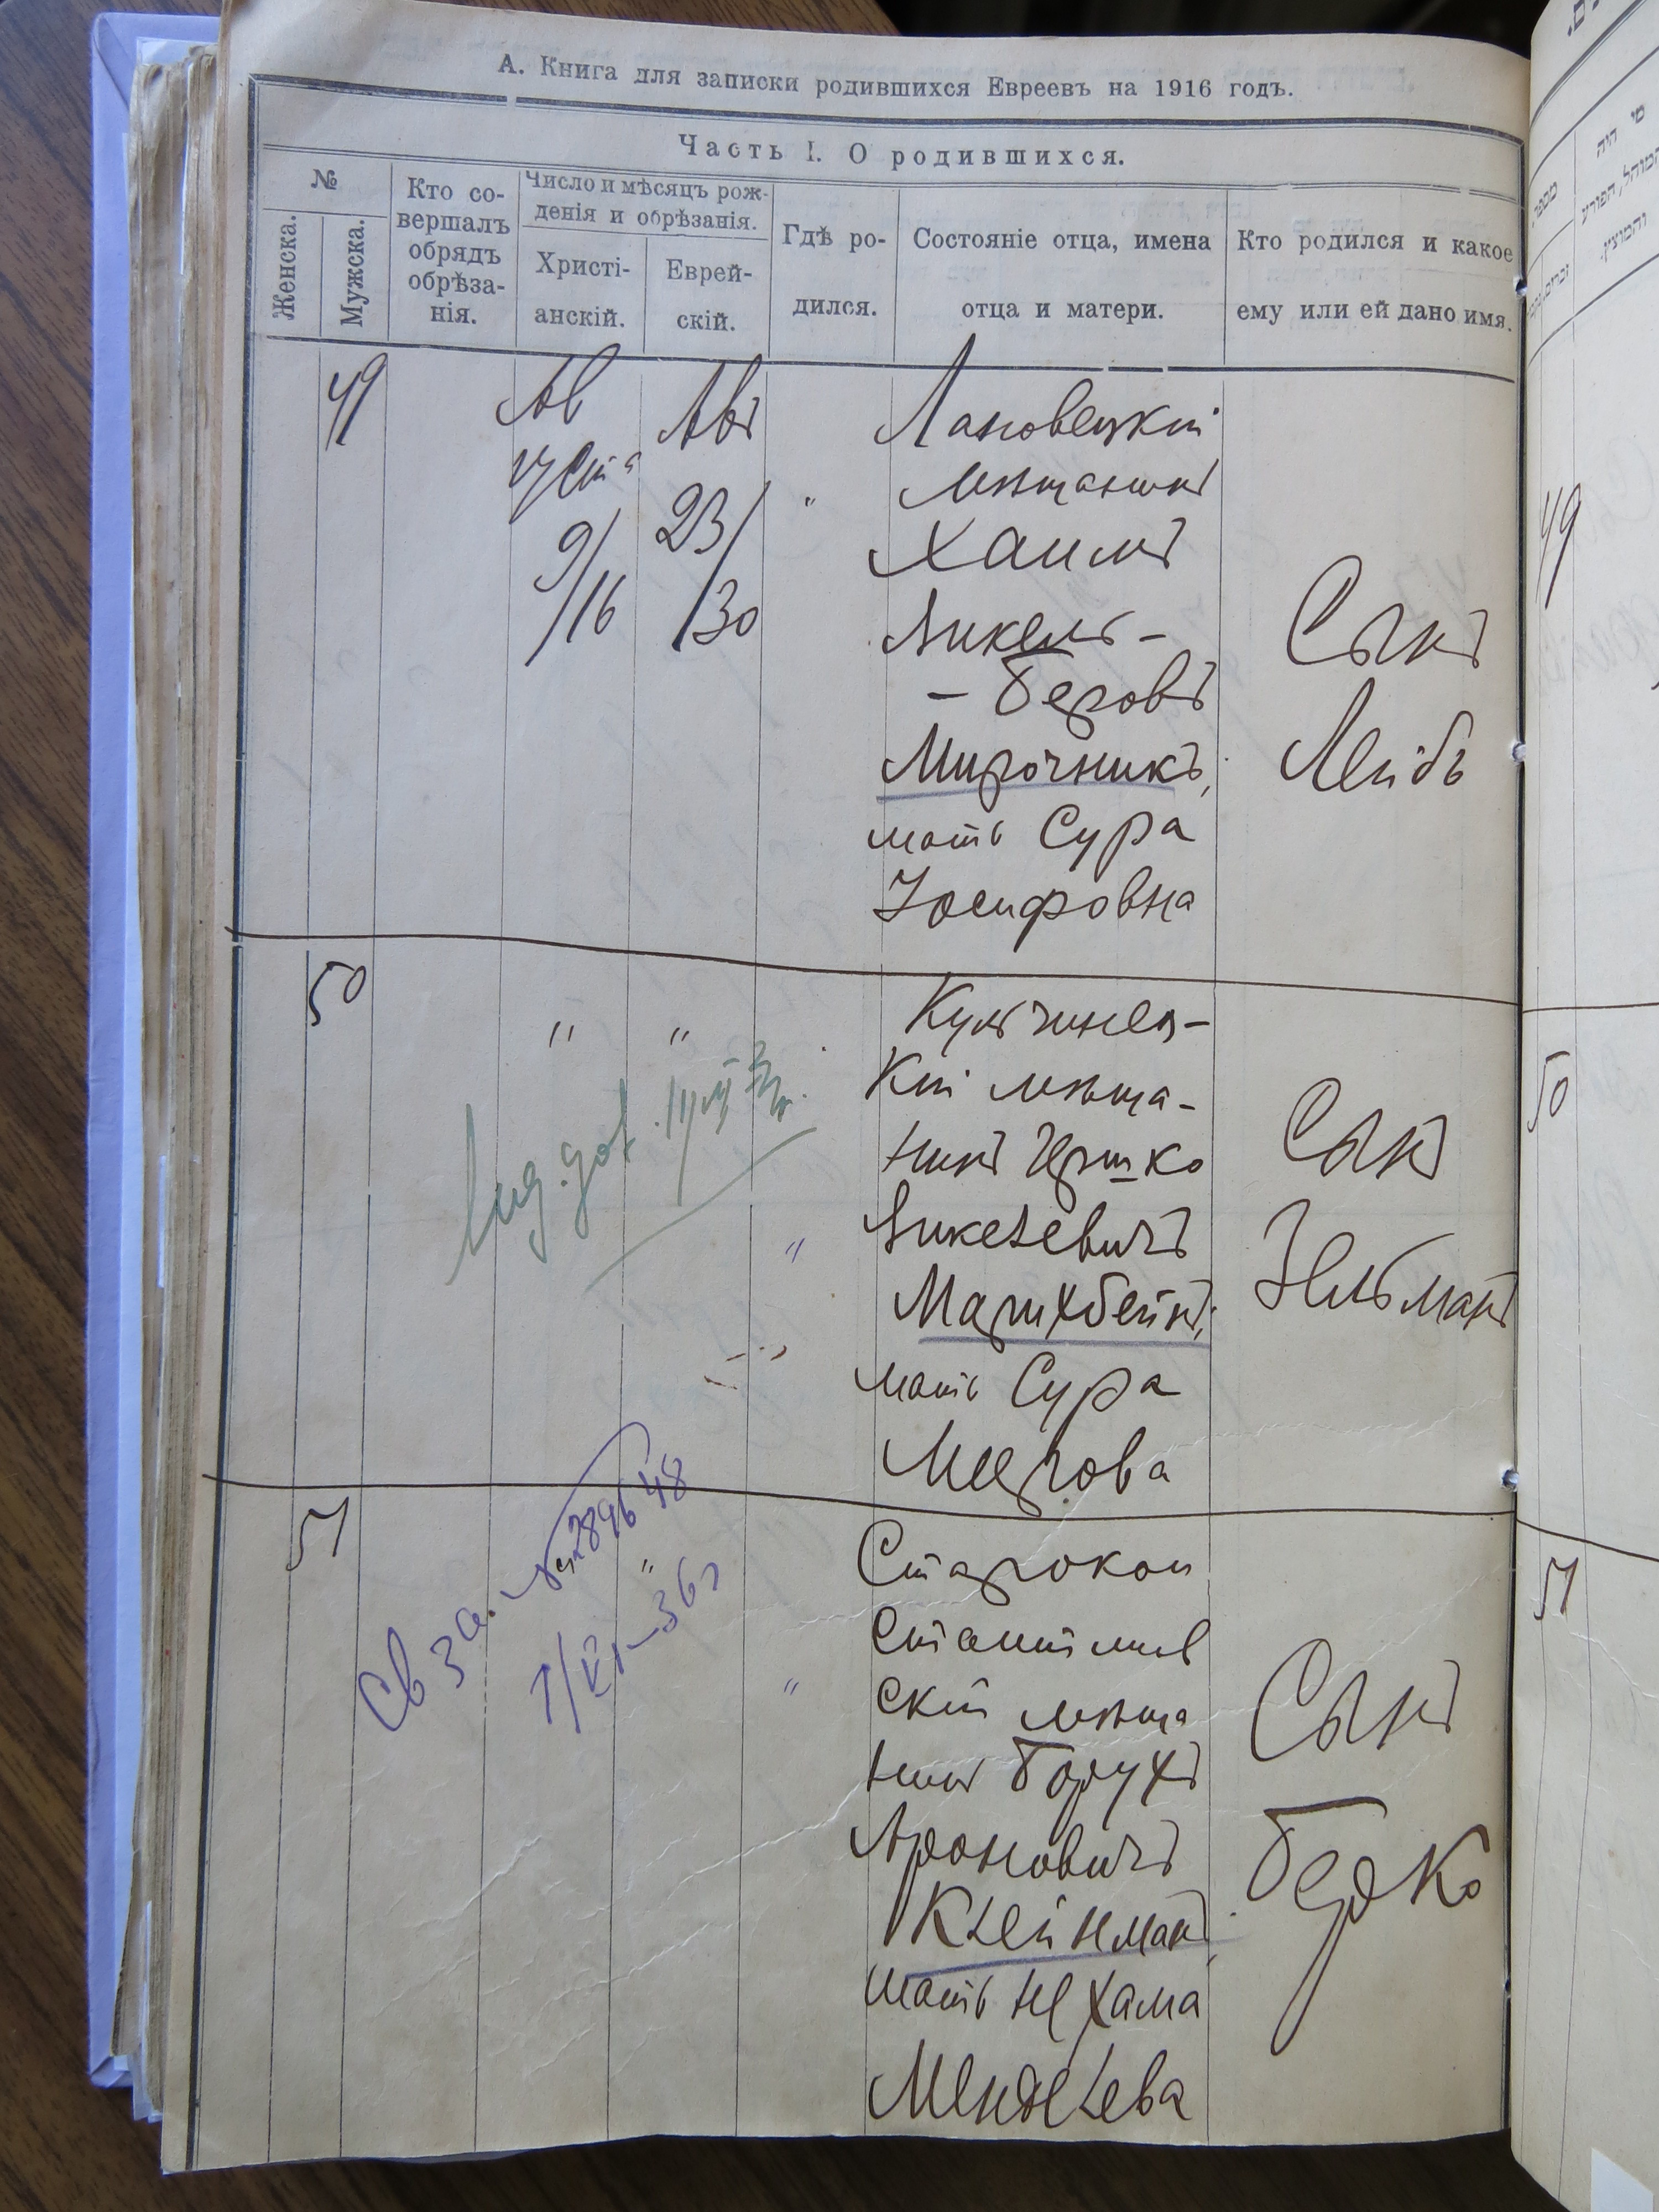 А. Книга для записки родившихся Евреевъ на 1916 годъ.
Часть I. О родившихся.
№
Женска.
Мужска.
Кто со-
вершалъ
обрядъ
обрѣза-
нія.
Число и мѣсяцъ рож-
денія и обрѣзанія.
Христі-
анскій.
Еврей-
скій.
Гдѣ ро-
дился.
Состояніе отца, имена
отца и матери.
Кто родился и какое
ему или ей дано имя.
49
Ав
густа
9/
/16
Авъ
23/
/30
"
Лановецкій
мѣщанинъ
Хаимъ
Анкель-
- Беровъ
Мирочникъ,
мать Сура
Іосифовна
Сынъ
Лейбъ
50
"
"
"
Кульчинец-
кій мѣща-
нинъ Иршко
Анкелевичъ
Маришбейнъ,
мать Сура
Меерова
Сынъ
Зельманъ
51
"
"
Старокон
стантинов
скій мѣща
нинъ Борухъ
Ароновичъ
Клейнманъ,
мать Нехама
Менделева
Сынъ
Берко
מספר
מי היה
49
50
51